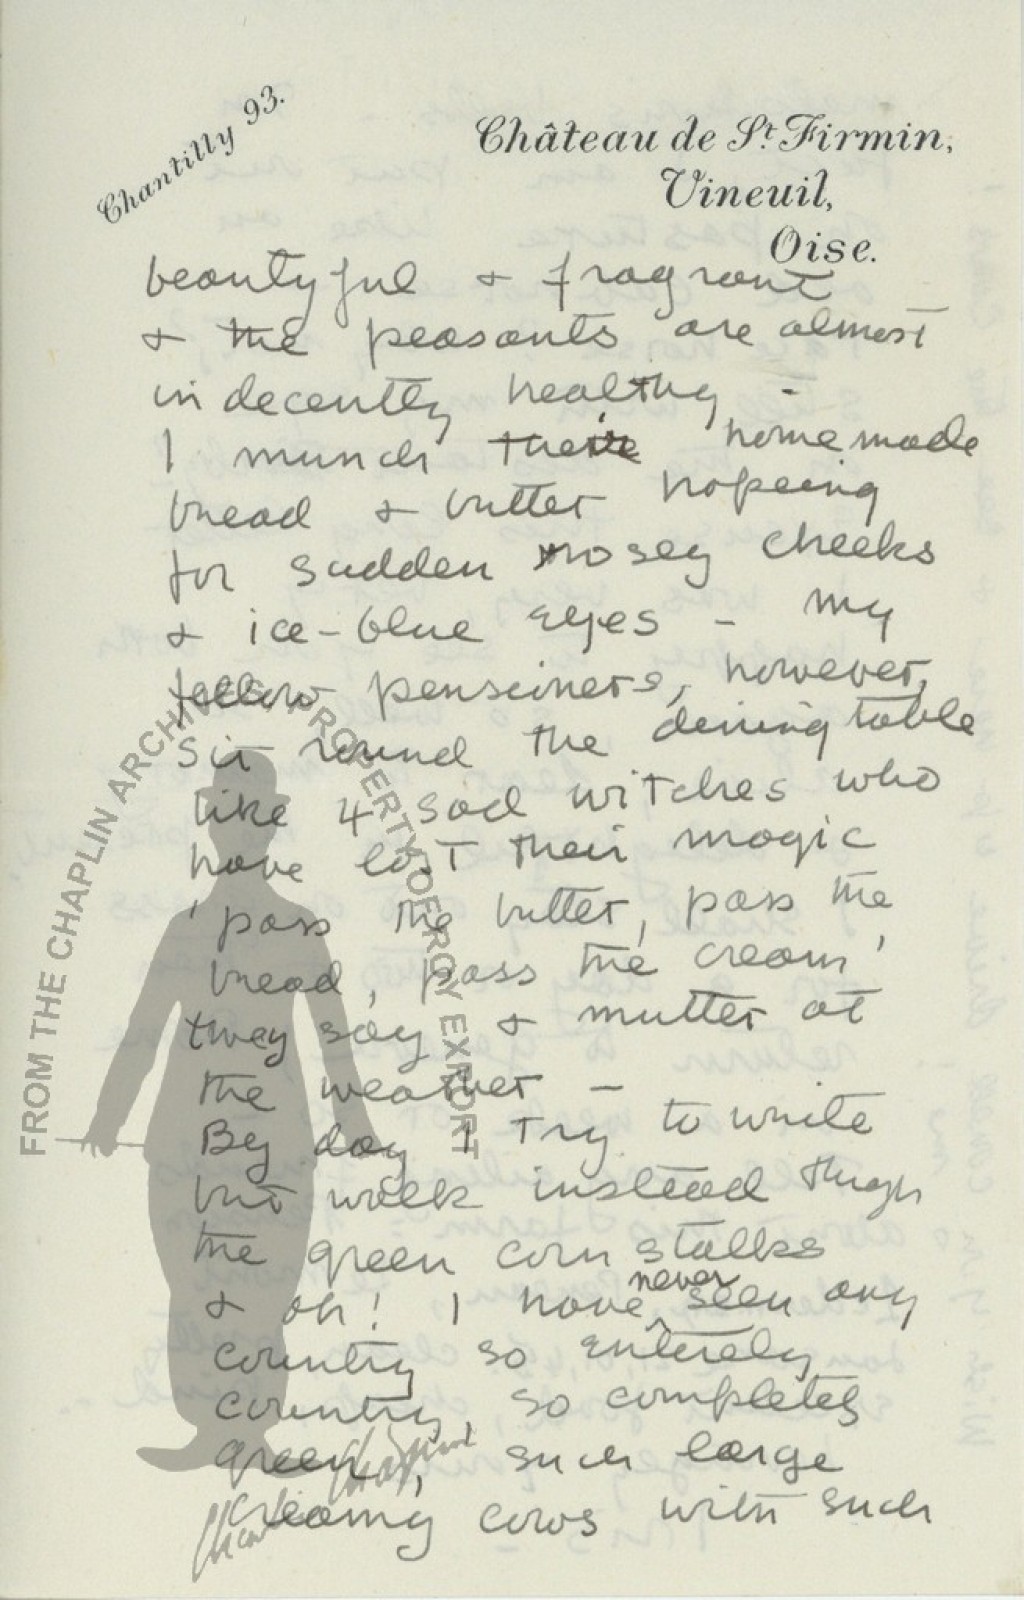 Chantilly 93.
Château de St. Firmin,
Vineuil,
Oise.
beautyful & fragrant
& the peasants are almost
indecently healthy –
I munch their home made
bread & butter hopeing
for sudden rosey cheeks
& ice-blue eyes – my
fellow pensioners, however,
sit round the dining table
like 4 sad witches who
have lost their magic
'pass the butter, pass the
bread, pass the cream'
they say & mutter at
the weather –
By day I try to write
but walk instead though
the green corn stalks
& oh! I have never seen any
country so entirely
country, so completely
green, such large
creamy cows with such
FROM THE CHAPLIN ARCHIVES. PROPERTY OF ROY EXPORT
Charlie Chaplin